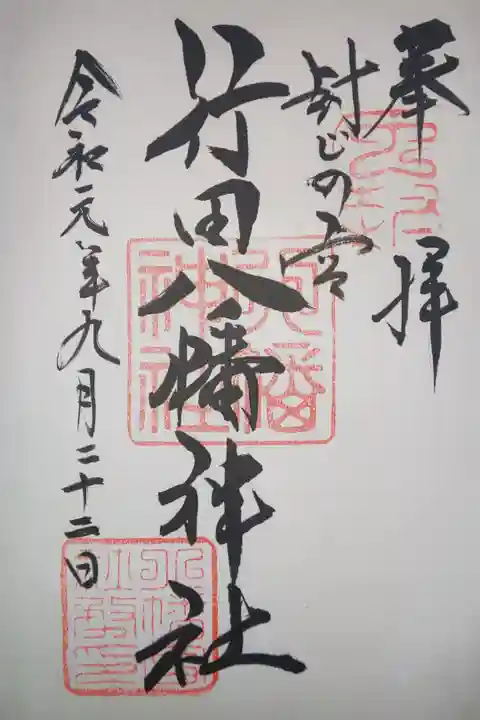 奉拝
封じの宮
行田八幡神社
令和元年九月二十二日
八幡神社